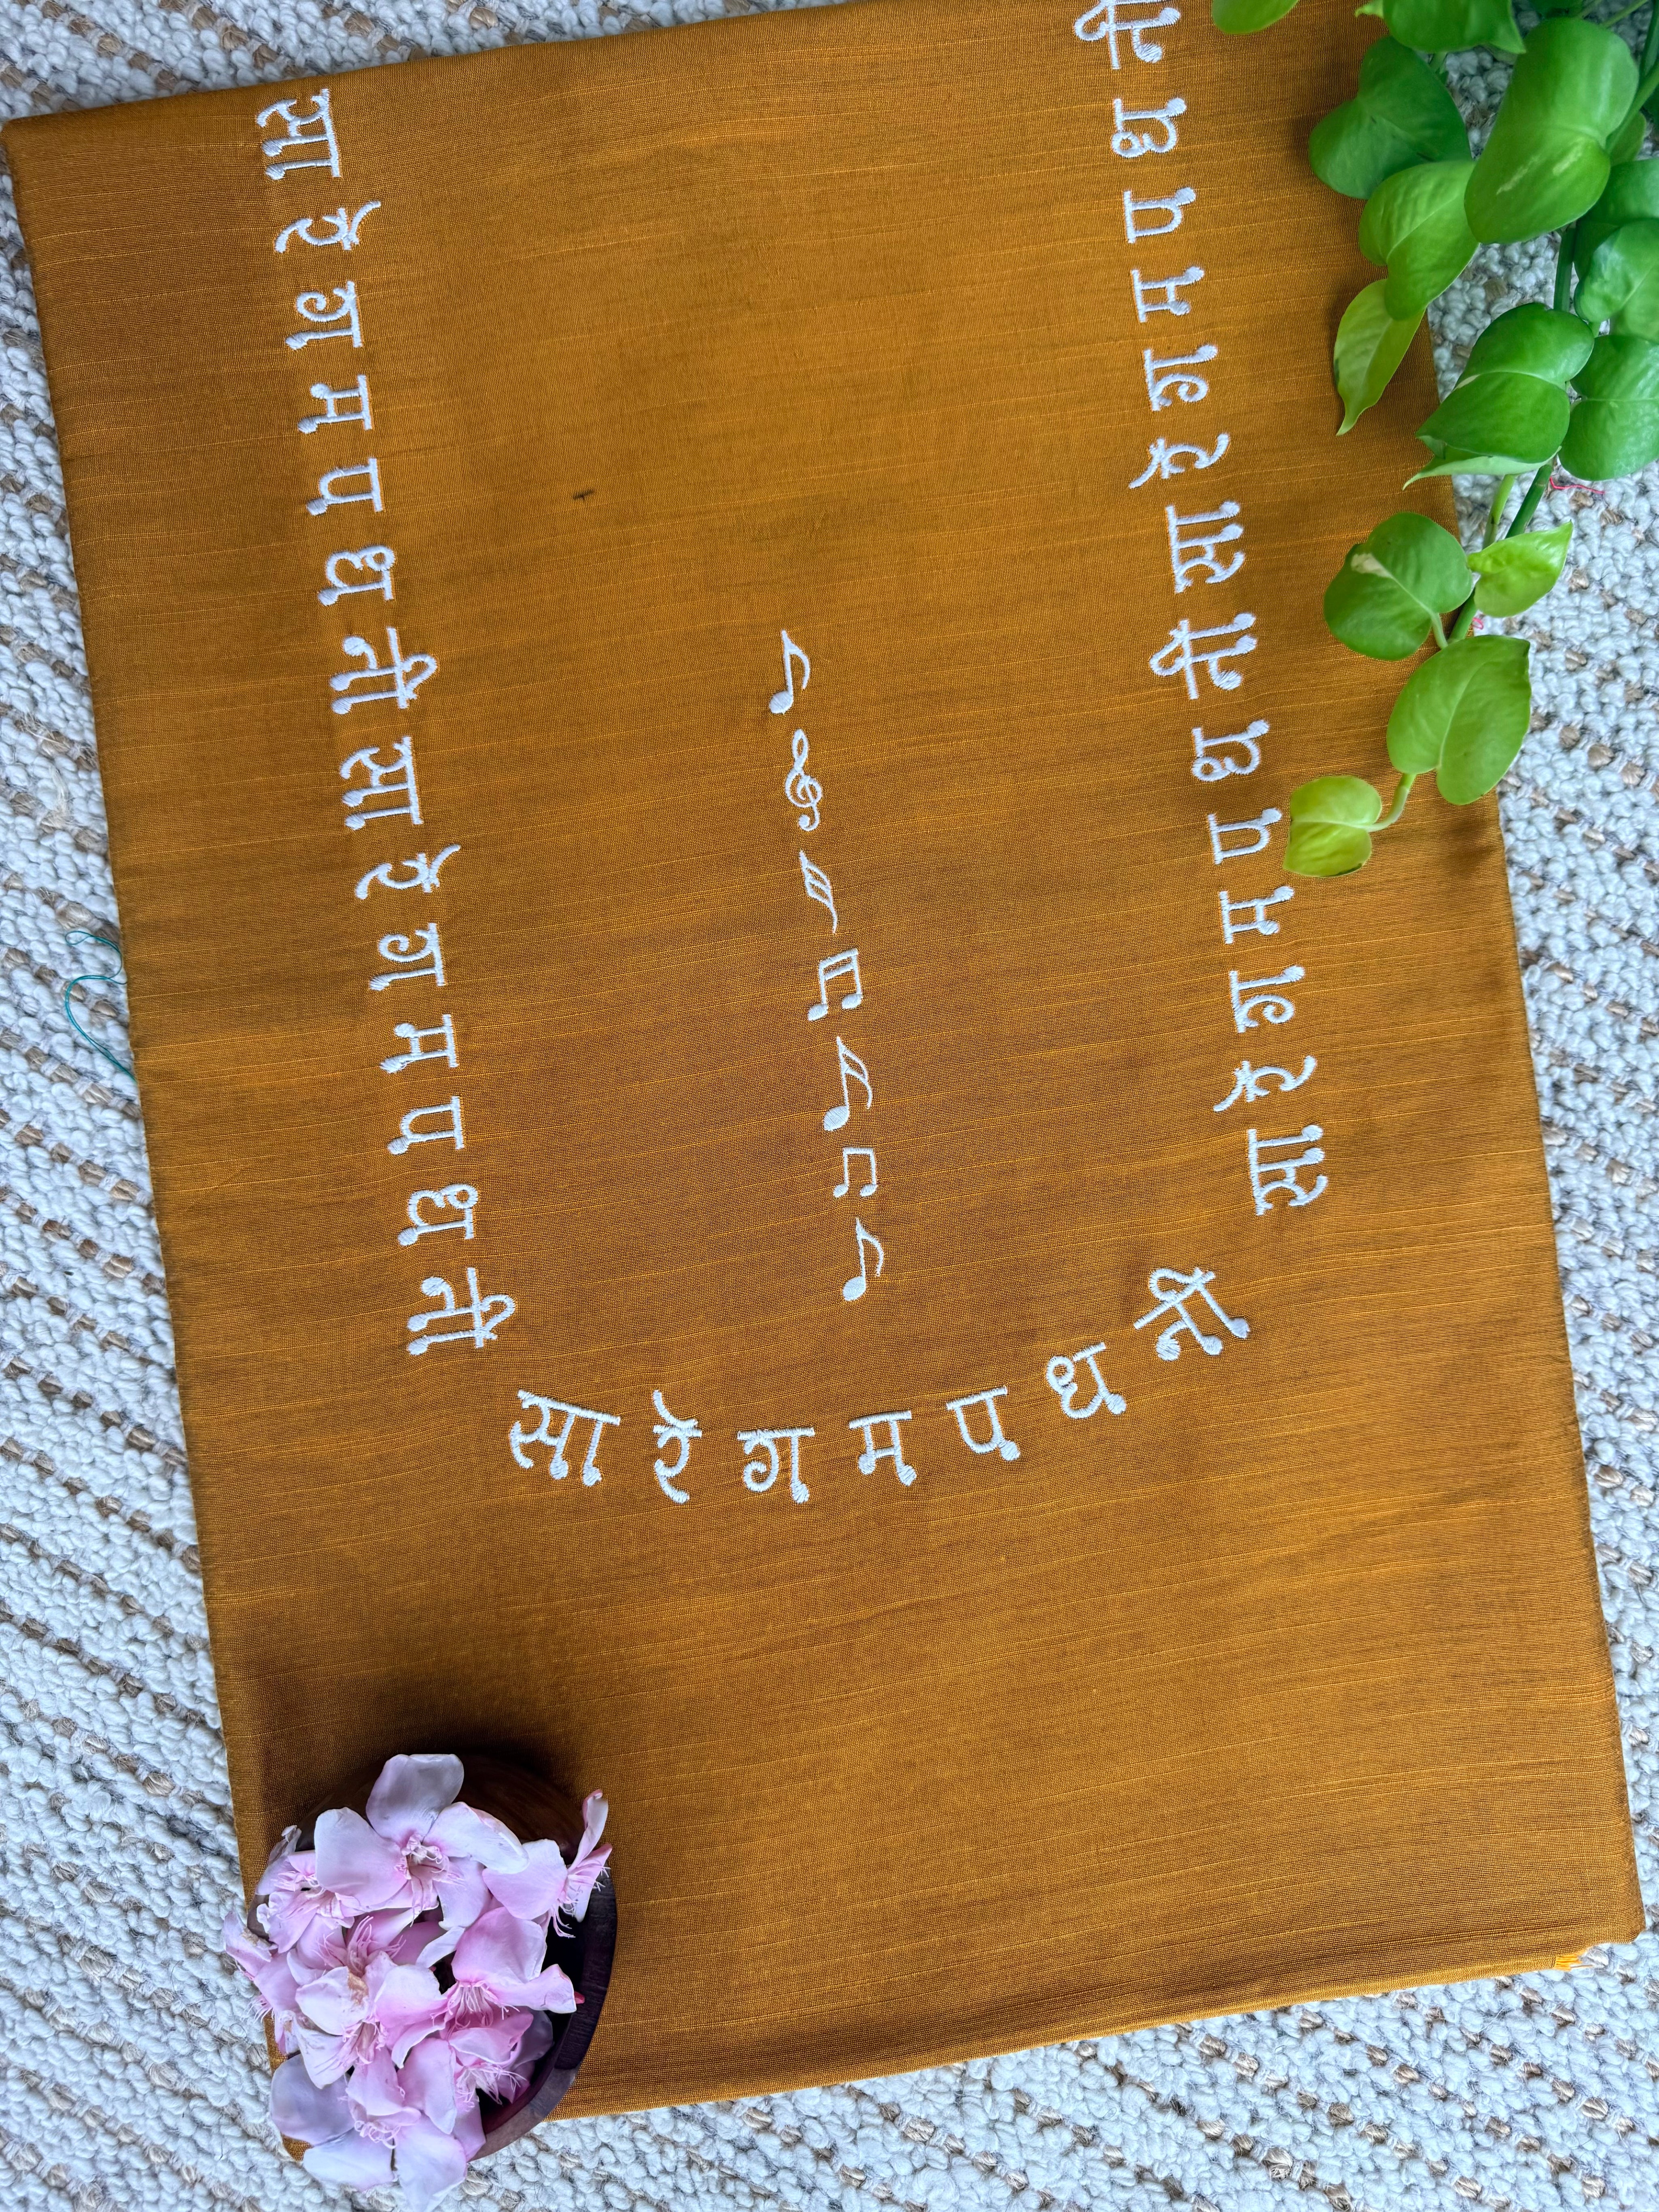 सा रे ग म प ध नी सा रे ग म प ध नी
सा रे ग म प ध नी
सा रे ग म प ध नी सा रे ग म प ध नी